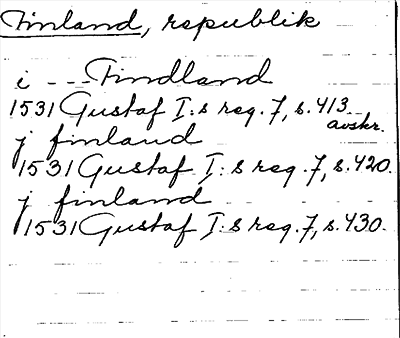 Finland, republik
i --- Findland
1531 Gustaf I:s reg. 7, s. 413
avskr.
j finland
1531 Gustaf I:s reg. 7, s. 420.
j finland
1531 Gustaf I:s reg. 7, s. 430.